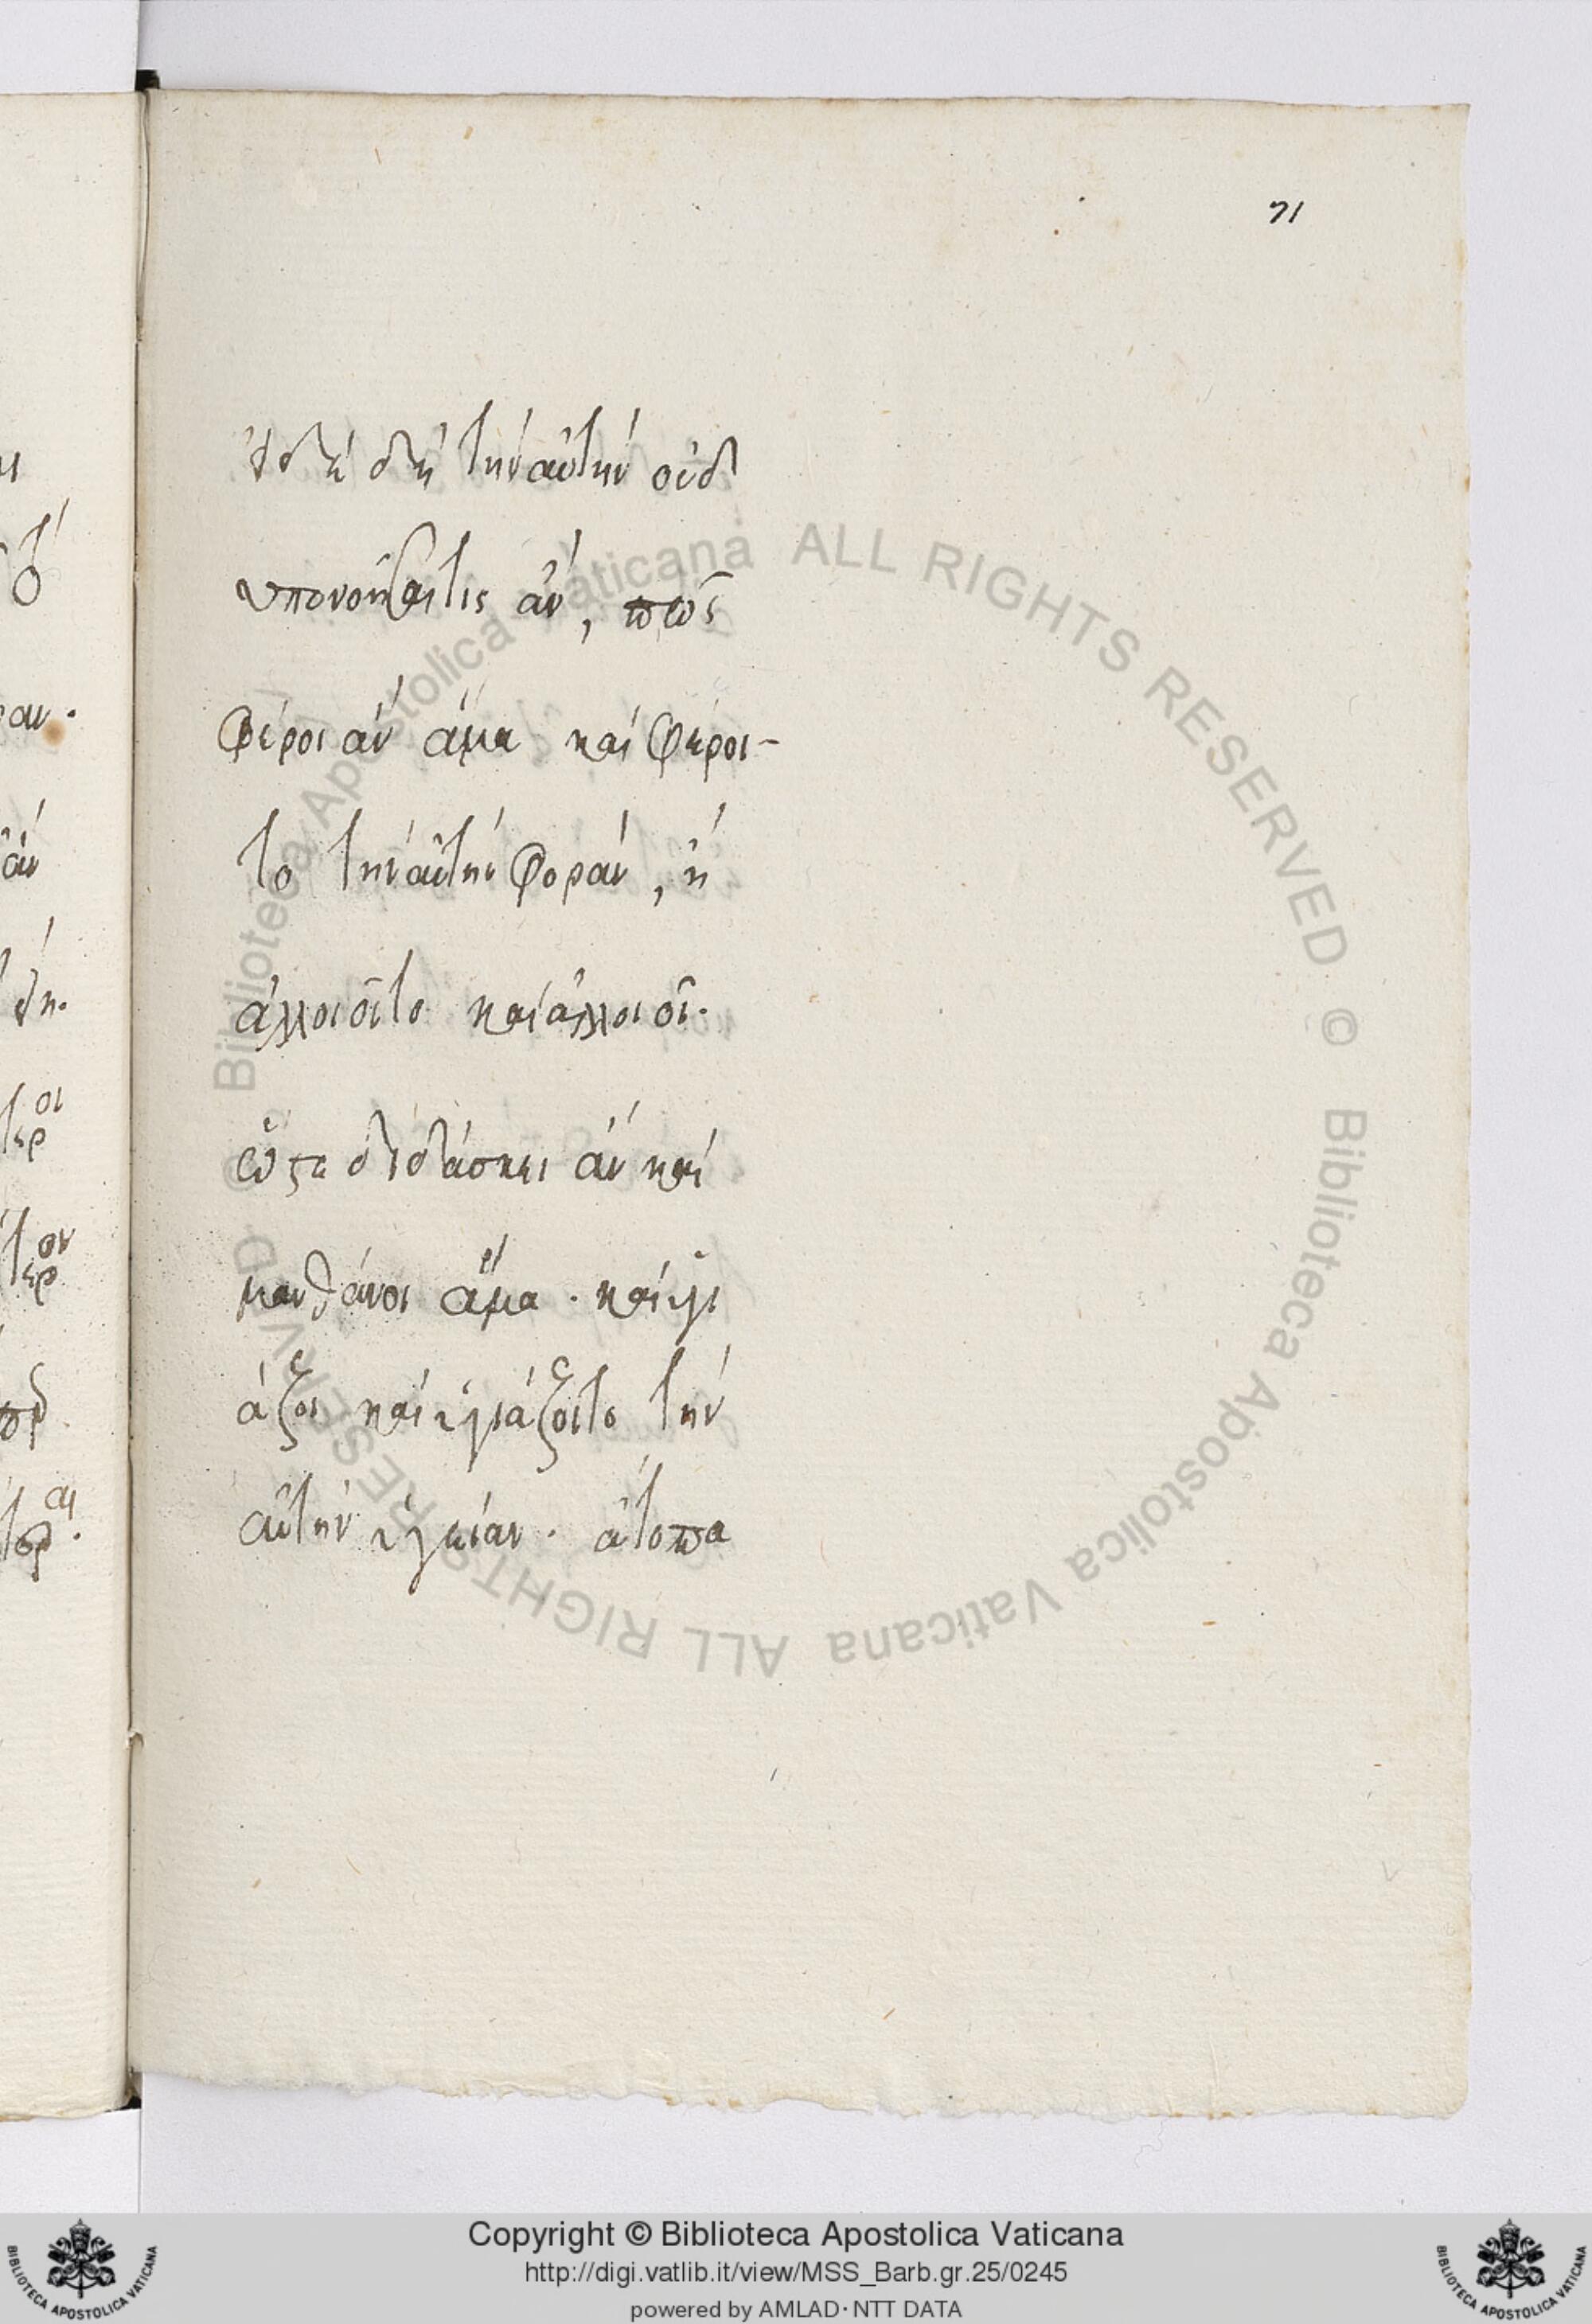 71
ἤδη δὴ τὴν αὐτὴν οὐδ
ὑπονοήσαι τις ἄν, πῶς
φέροι ἂν ἅμα καὶ φέροι-
το τὴν αὐτὴν φοράν, ἢ
ἀλλοιοῖτο καὶ ἀλλοιοῖ.
ὥστε διδάσκει ἂν καὶ
μανθάνοι ἅμα. καὶ ὑγι
άζοι καὶ ὑγιάζοιτο τὴν
αὐτὴν ὑγείαν. ἄτοπα
Biblioteca Apostolica Vaticana ALL RIGHTS RESERVED ©
Biblioteca Apostolica Vaticana ALL RIGHTS RESERVED ©
Copyright © Biblioteca Apostolica Vaticana
http://digi.vatlib.it/view/MSS_Barb.gr.25/0245
powered by AMLAD·NTT DATA
BIBLIOTECA APOSTOLICA VATICANA
BIBLIOTECA APOSTOLICA VATICANA